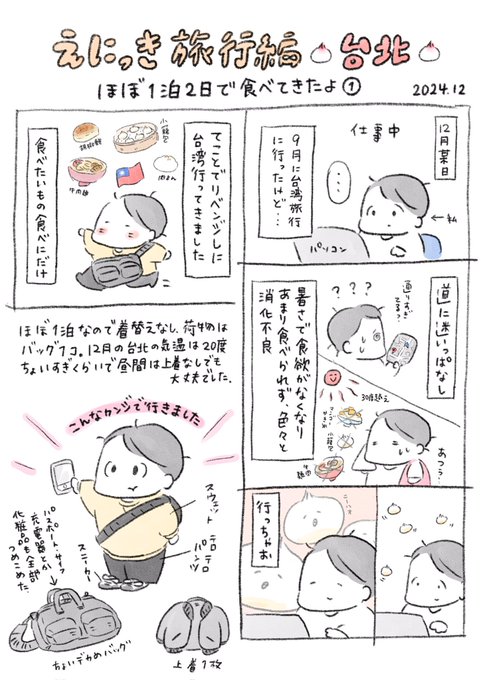 えにっき旅行編 台北
ほぼ1泊2日で食べてきたよ①
2024.12
12月某日
仕事中
9月に台湾旅行
に行ったけど…
…
←私
パソコン
道に迷いっぱなし
???
通りすぎてる?
暑さで食欲がなくなり
あまり食べられず、色々と
消化不良
30度越え
マンゴーかき氷
小籠包
牛肉麺
あつぅ
行っちゃお
てことでリベンジしに
台湾行ってきました
小籠包
胡椒餅
肉まん
牛肉麺
食べたいもの食べにだけ
ほぼ1泊なので着替えなし、荷物は
バッグ1コ。12月の台北の気温は20度
ちょいすぎくらいで昼間は上着なしでも
大丈夫でした。
こんなカンジで行きました
スウェット
テロテロ
パンツ
スニーカー
パスポート、サイフ
充電器とか
化粧品も全部
つめこめた
ちょいデカめバッグ
上着1枚